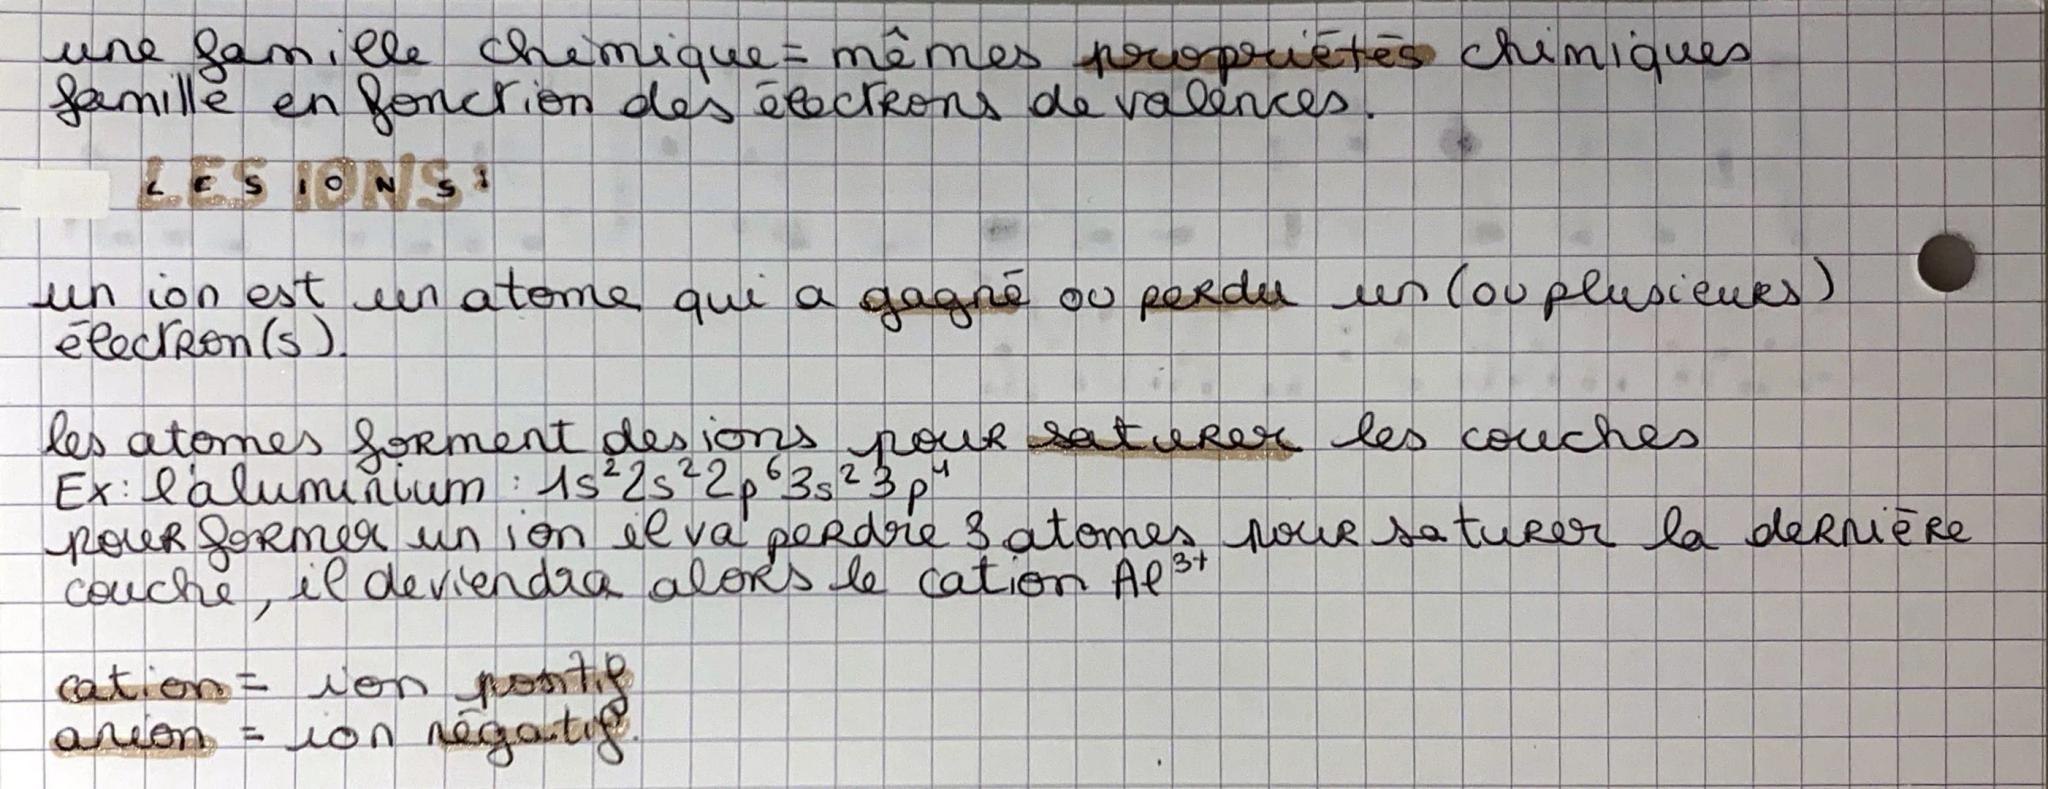 une famille chimique = mêmes propriétés chimiques
famille en fonction des électrons de valences.
LES IONS :
un ion est un atome qui a gagné ou perdu un (ou plusieurs)
électron(s).
les atomes forment des ions pour saturer les couches
Ex : l'aluminium : 1s²2s²2p⁶3s²3p⁴
pour former un ion il va perdre 3 atomes pour saturer la dernière
couche, il deviendra alors le cation Al³⁺
cation = ion positif
anion = ion négatif.